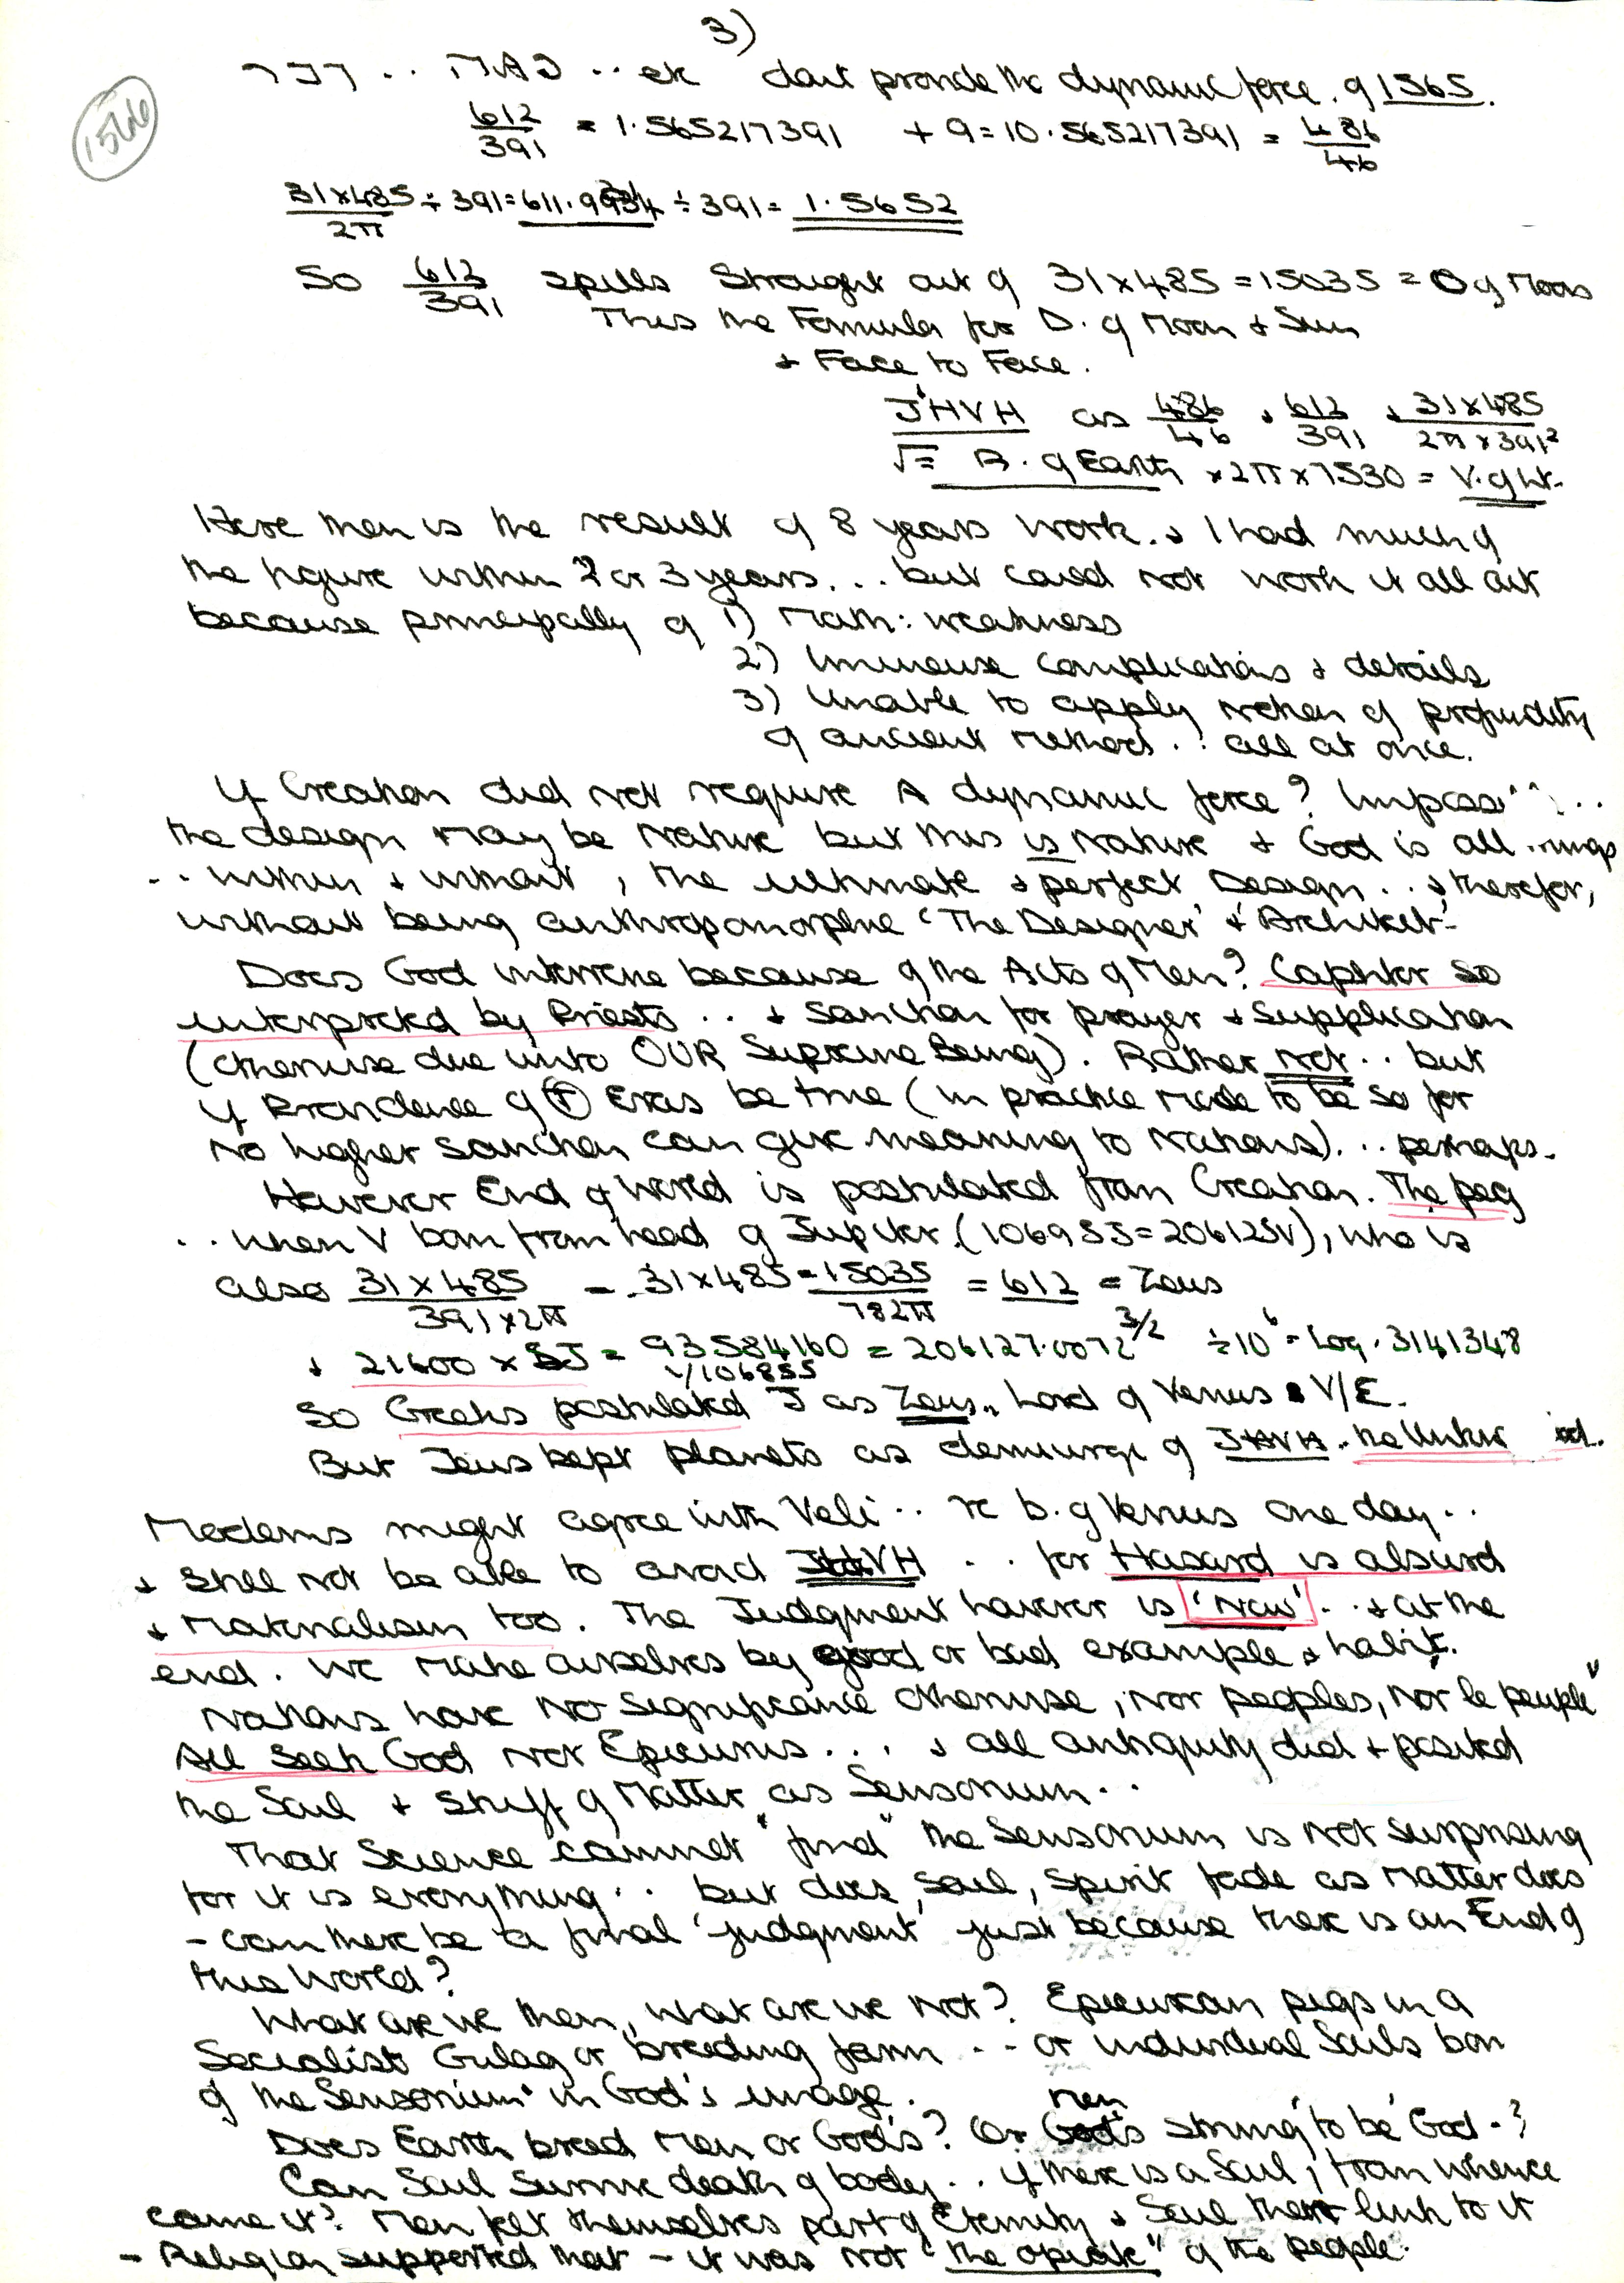 3)
1566
.. etc don't provide the dynamic force of 1565.
612/391 = 1.565217391 + 9 = 10.565217391 = 486/46
31x485/2π ÷ 391 = 611.9934 ÷ 391 = 1.5652
So 612/391 spills straight out of 31x485 = 15035 = O of Moon
Thus the Formula for D. of Moon + Sun
+ Face to Face.
JHVH as 486/46 + 612/391 + 31x485/2π x 391²
√= R. of Earth x 2π x 7530 = V. of Lt.
Here then is the result of 8 years work. + I had much of
the figure within 2 or 3 years... but could not work it all out
because principally of 1) Math: weakness
2) Immense complications + details
3) Unable to apply notion of profundity
of ancient method.. all at once.
If Creation did not require A dynamic force?
the design may be Nature but this is Nature + God is all
.. within + without, the ultimate + perfect Design.. + therefor,
without being anthropomorphic 'The Designer' + 'Architect'
Does God intervene because of the Acts of Men? Caphtor so
interpreted by Priests.. + sanction for prayer + supplication
(otherwise due unto OUR Supreme Being). Rather not.. but
if Providence of Eras be true (in practice made to be so for
no higher sanction can give meaning to Nations)... perhaps.
However End of World is postulated from Creation. The peg
.. when V born from head of Jupiter. (106955J = 206125V), who is
also 31 x 485/391 x 2π - 31 x 485 = 15035/782π = 612 = Zeus
+ 21600 x 5J = 93584160 = 206127.0072 3/2 ÷ 10⁶ = Log .3141348
√106855
So Greeks postulated J as Zeus, Lord of Venus V/E.
But Jews kept planets as demiurge of JHVH.
Moderns might agree with Veli.. re b. of Venus one day..
+ still not be able to avoid JHVH .. for Hasard is absurd
+ Materialism too. The Judgment however is 'Now'.. + at the
end. We make ourselves by good or bad example + habit.
Nations have no significance otherwise, nor peoples, nor le peuple"
All Seek God not Epicurus... + all antiquity did + posited
the Soul + stuff of Matter as Sensorium..
That Science cannot "find" the Sensorium is not surprising
for it is everything.. but does, Soul, Spirit fade as Matter does
- can there be a final 'judgment' just because there is an End of
this World?
What are we then, what are we not? Epicurean pigs in a
Socialist Gulag or breeding farm .. or individual Souls born
of the Sensorium in God's image.
Does Earth breed Men or Gods? Or men striving to be God -?
Can Soul survive death of body.. if there is a Soul; from whence
came it? Men felt themselves part of Eternity + Soul their link to it
- Religion supported that - it was not "the opiate" of the people.